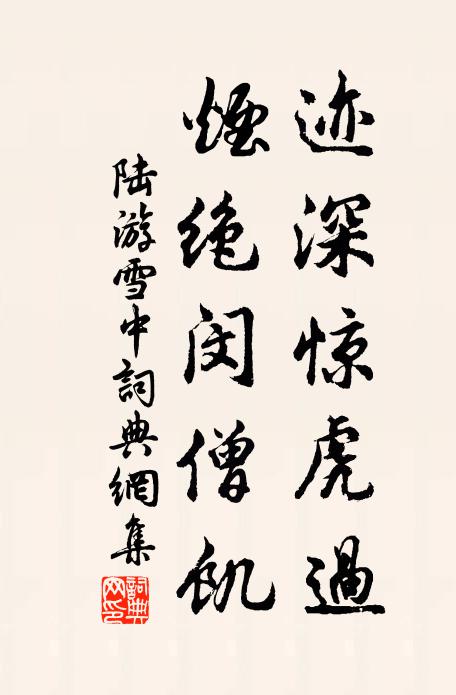 迹深惊虎過
煙绝闵僧飢
陆游雪中詞典網集
詞典网印